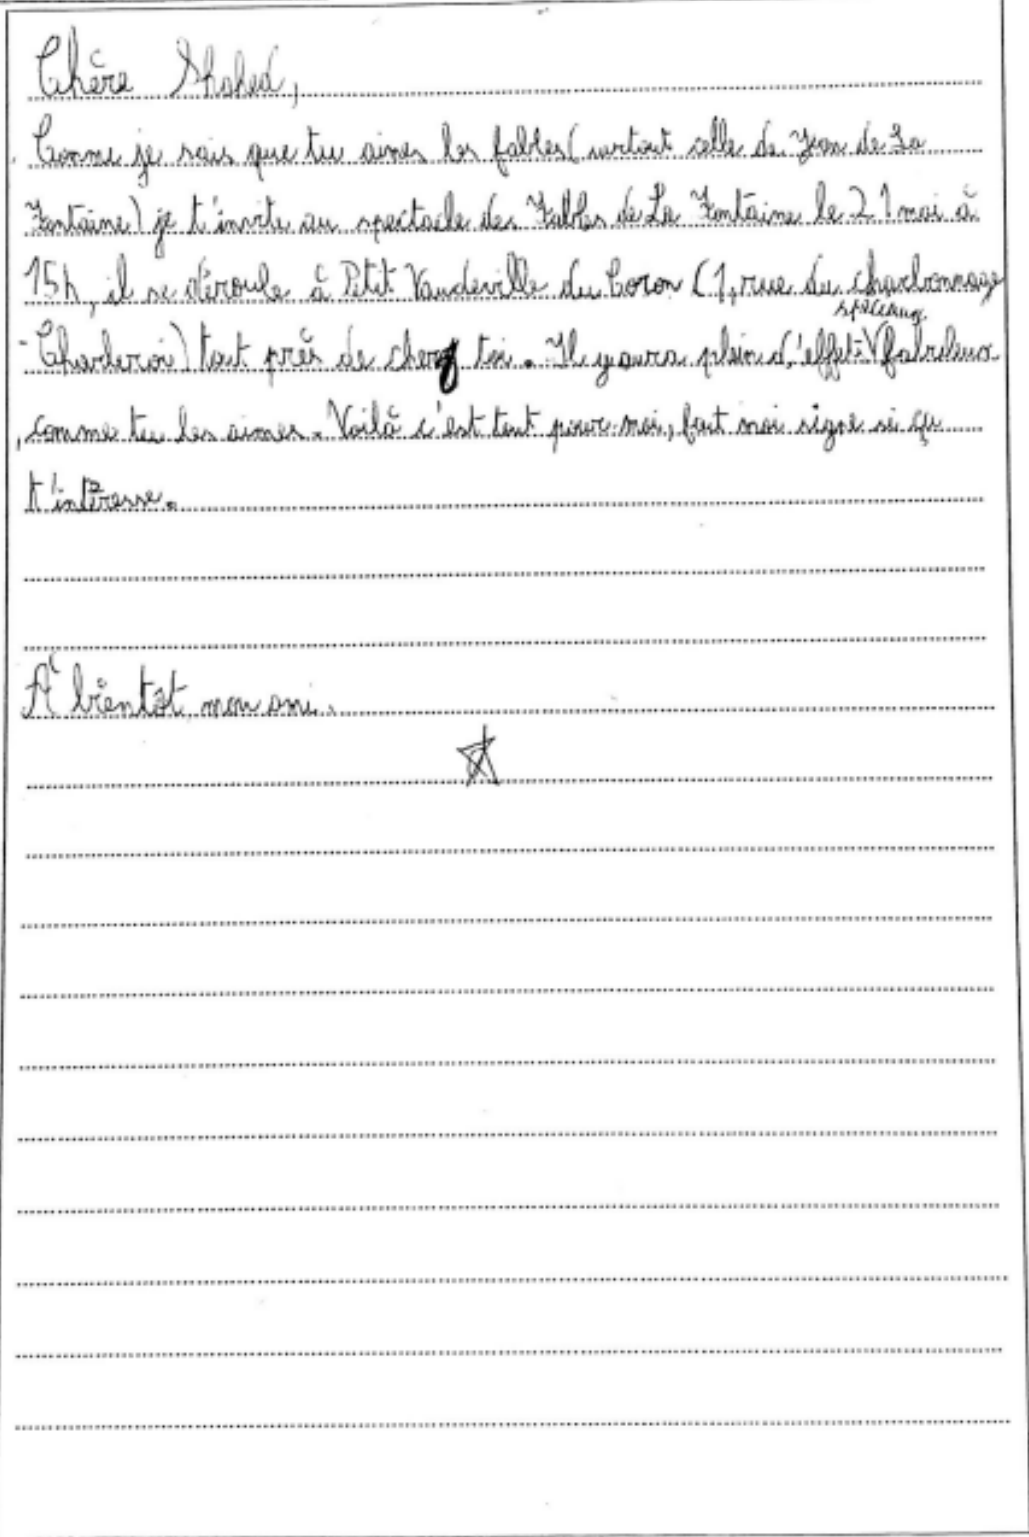 Chère Shahed,
Comme je sais que tu aimes les fables (surtout celle de Jean de La
Fontaine) je t'invite au spectacle des Fables de La Fontaine le 21 mai à
15h, il se déroule à Petit Vaudeville du Coron (1, rue du charbonnage
- Charleroi) tout près de chez toi. Il y aura plein d'effet spéciaux fabuleux
, comme tu les aimes. Voilà c'est tout pour moi, fait moi signe si ça
t'intéresse.
À bientôt mon ami.